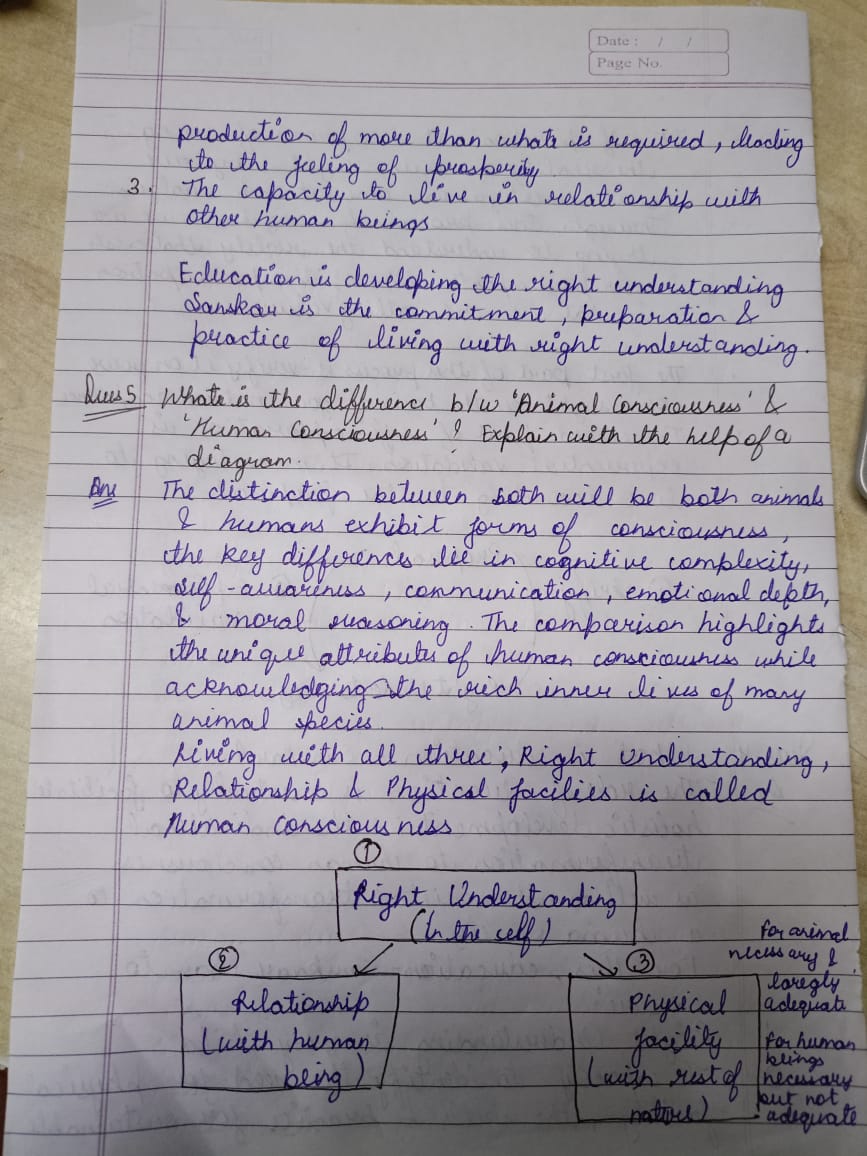 Date : / /
Page No.
production of more than what is required, leading
to the feeling of prosperity
3. The capacity to live in relationship with
other human beings
Education is developing the right understanding
Sanskar is the commitment, preparation &
practice of living with right understanding.
Ques 5 What is the difference b/w 'Animal Consciousness' &
'Human Consciousness'? Explain with the help of a
diagram.
Ans The distinction between both will be both animals
& humans exhibit forms of consciousness,
the key differences lie in cognitive complexity,
self-awareness, communication, emotional depth,
& moral reasoning. The comparison highlights
the unique attributes of human consciousness while
acknowledging the rich inner lives of many
animal species.
Living with all three, Right Understanding,
Relationship & Physical facilies is called
Human Consciousness
1
Right Understanding
(In the self)
2
Relationship
(with human
being)
3
Physical
facility
(with rest of
nature)
for animal
necessary &
laregly
adequate
for human
beings
necessary
but not
adequate